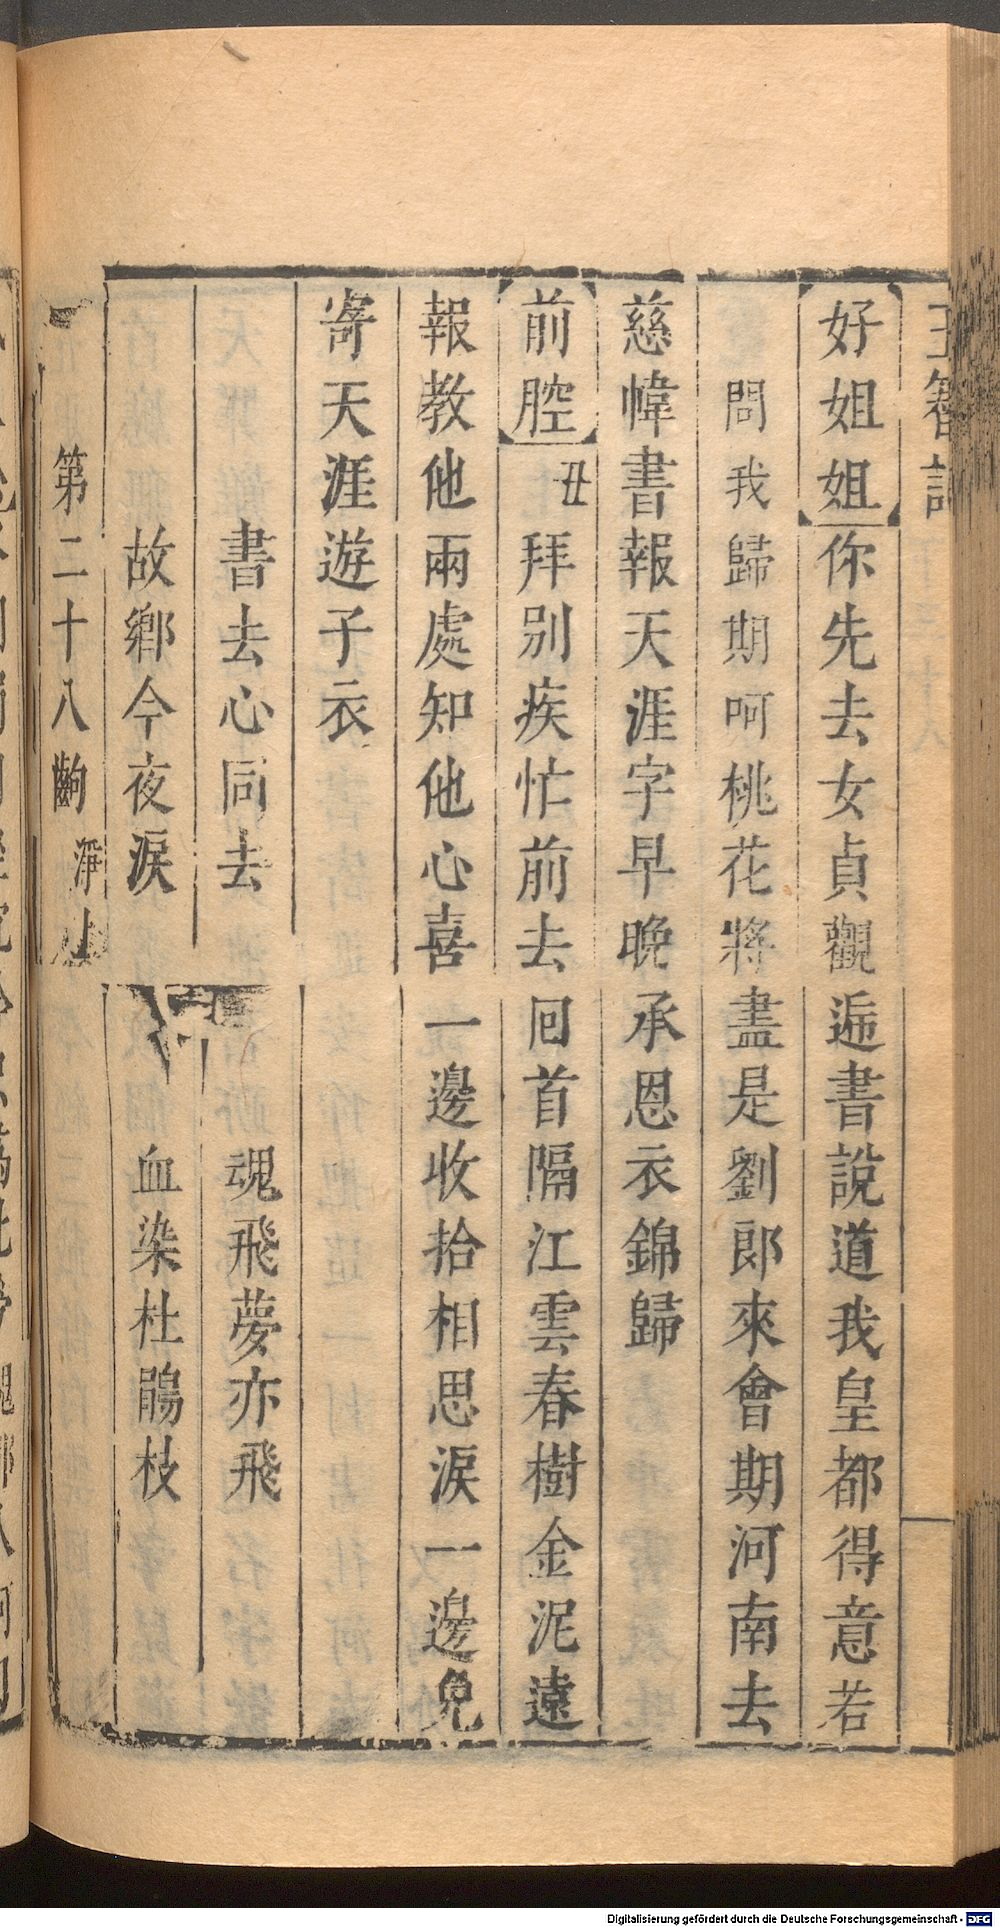 好姐姐你先去女貞觀逓書說道我皇都得意若
問我歸期呵桃花將盡是劉郎來會期河南去
慈幃書報天涯字早晚承恩衣錦歸
前腔丑拜別疾忙前去囘首隔江雲春樹金泥遠
報教他兩處知他心喜一邊收拾相思淚一邊免
寄天涯遊子衣
書去心同去 魂飛夢亦飛
故鄉今夜淚 血染杜鵑枝
第二十八齣 淨上
Digitalisierung gefördert durch die Deutsche Forschungsgemeinschaft - DFG